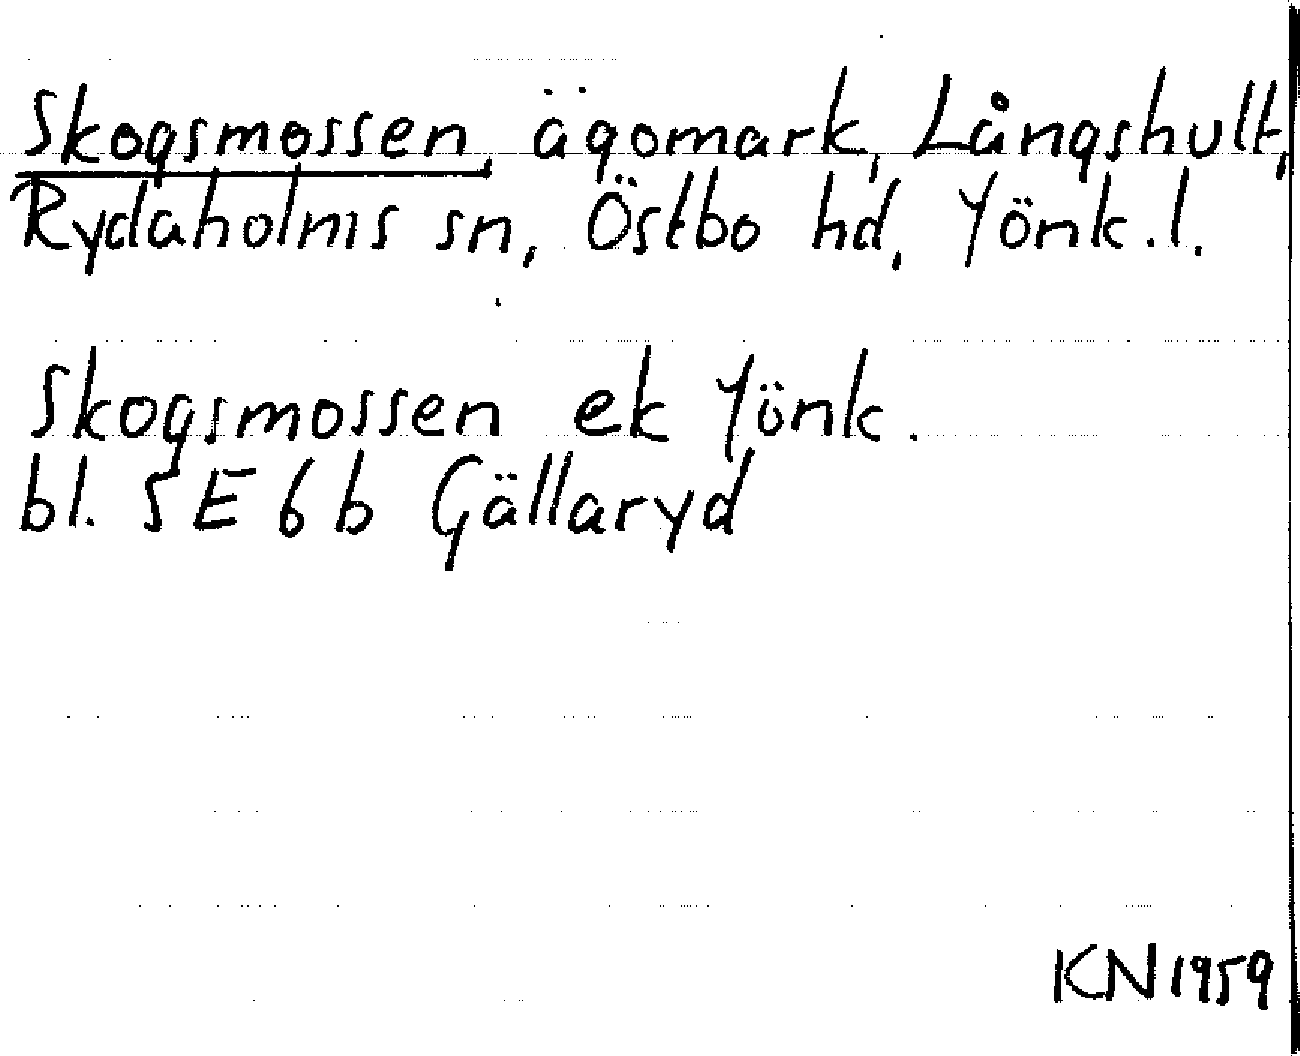 Skogsmossen, ägomark, Långshult,
Rydaholms sn, Östbo hd, Jönk.l.
Skogsmossen ek Jönk.
bl. 5E 6b Gällaryd
KN 1959